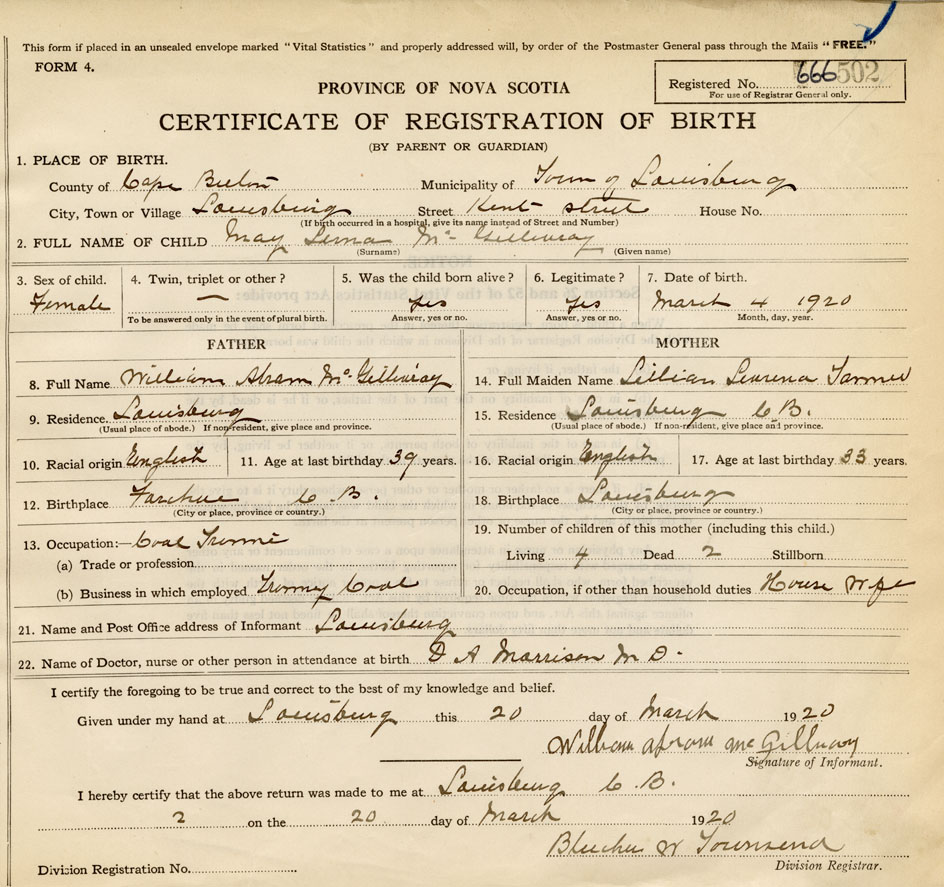 This form if placed in an unsealed envelope marked "Vital Statistics" and properly addressed will, by order of the Postmaster General pass through the Mails "FREE."
FORM 4.
Registered No. 666 502
For use of Registrar General only.
PROVINCE OF NOVA SCOTIA
CERTIFICATE OF REGISTRATION OF BIRTH
(BY PARENT OR GUARDIAN)
1. PLACE OF BIRTH.
County of Cape Breton Municipality of Town of Louisburg
City, Town or Village Louisburg Street Kent street House No.
(If birth occurred in a hospital, give its name instead of Street and Number)
2. FULL NAME OF CHILD May Lerna Mc Gillivray
(Surname) (Given name)
3. Sex of child. 4. Twin, triplet or other? 5. Was the child born alive? 6. Legitimate? 7. Date of birth.
Female — yes yes March 4 1920
To be answered only in the event of plural birth. Answer, yes or no. Answer, yes or no. Month, day, year.
FATHER
8. Full Name William Abram Mc Gillivray
9. Residence. Louisburg
(Usual place of abode.) If non-resident, give place and province.
10. Racial origin English 11. Age at last birthday 39 years.
12. Birthplace C. B.
(City or place, province or country.)
13. Occupation:— Coal
(a) Trade or profession
(b) Business in which employed Coal
MOTHER
14. Full Maiden Name Lillian
15. Residence Louisburg C B.
(Usual place of abode.) If non-resident, give place and province.
16. Racial origin English 17. Age at last birthday 33 years.
18. Birthplace Louisburg
(City or place, province or country.)
19. Number of children of this mother (including this child.)
Living 4 Dead 2 Stillborn
20. Occupation, if other than household duties House wife
21. Name and Post Office address of Informant Louisburg
22. Name of Doctor, nurse or other person in attendance at birth D A Morrison M D.
I certify the foregoing to be true and correct to the best of my knowledge and belief.
Given under my hand at Louisburg this 20 day of March 1920
William Abram McGillivray
Signature of Informant.
I hereby certify that the above return was made to me at Louisburg C. B.
2 on the 20 day of March 1920
W Townsend
Division Registrar.
Division Registration No.